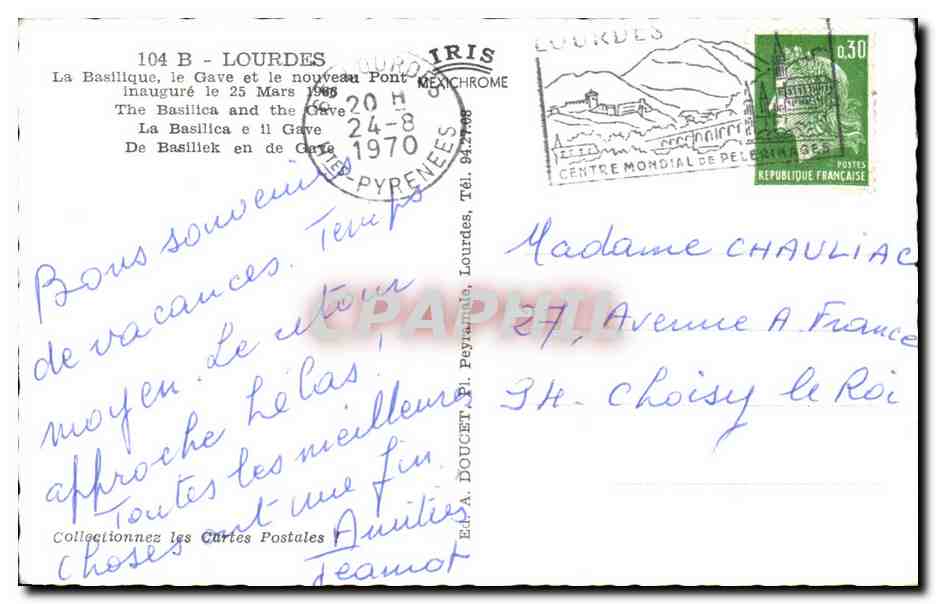 104 B - LOURDES
La Basilique, le Gave et le nouveau Pont
inauguré le 25 Mars
The Basilica and the Gave
La Basilica e il Gave
De Basiliek en de Gave
IRIS
MEXICHROME
LOURDES
20 H
24-8
1970
Htes-PYRENEES
LOURDES
CENTRE MONDIAL DE PELERINAGES
0,30
POSTES
REPUBLIQUE FRANÇAISE
Bons souvenirs
de vacances. Temps
moyen. Le retour
approche hélas !
Toutes les meilleures
choses ont une fin.
Amitiés
Collectionnez les Cartes Postales !
Ed. A. DOUCET, Pl. Peyramale, Lourdes, Tél. 94.27.08
Madame CHAULIAC
27, Avenue A France
94- Choisy le Roi
CPAPHIL